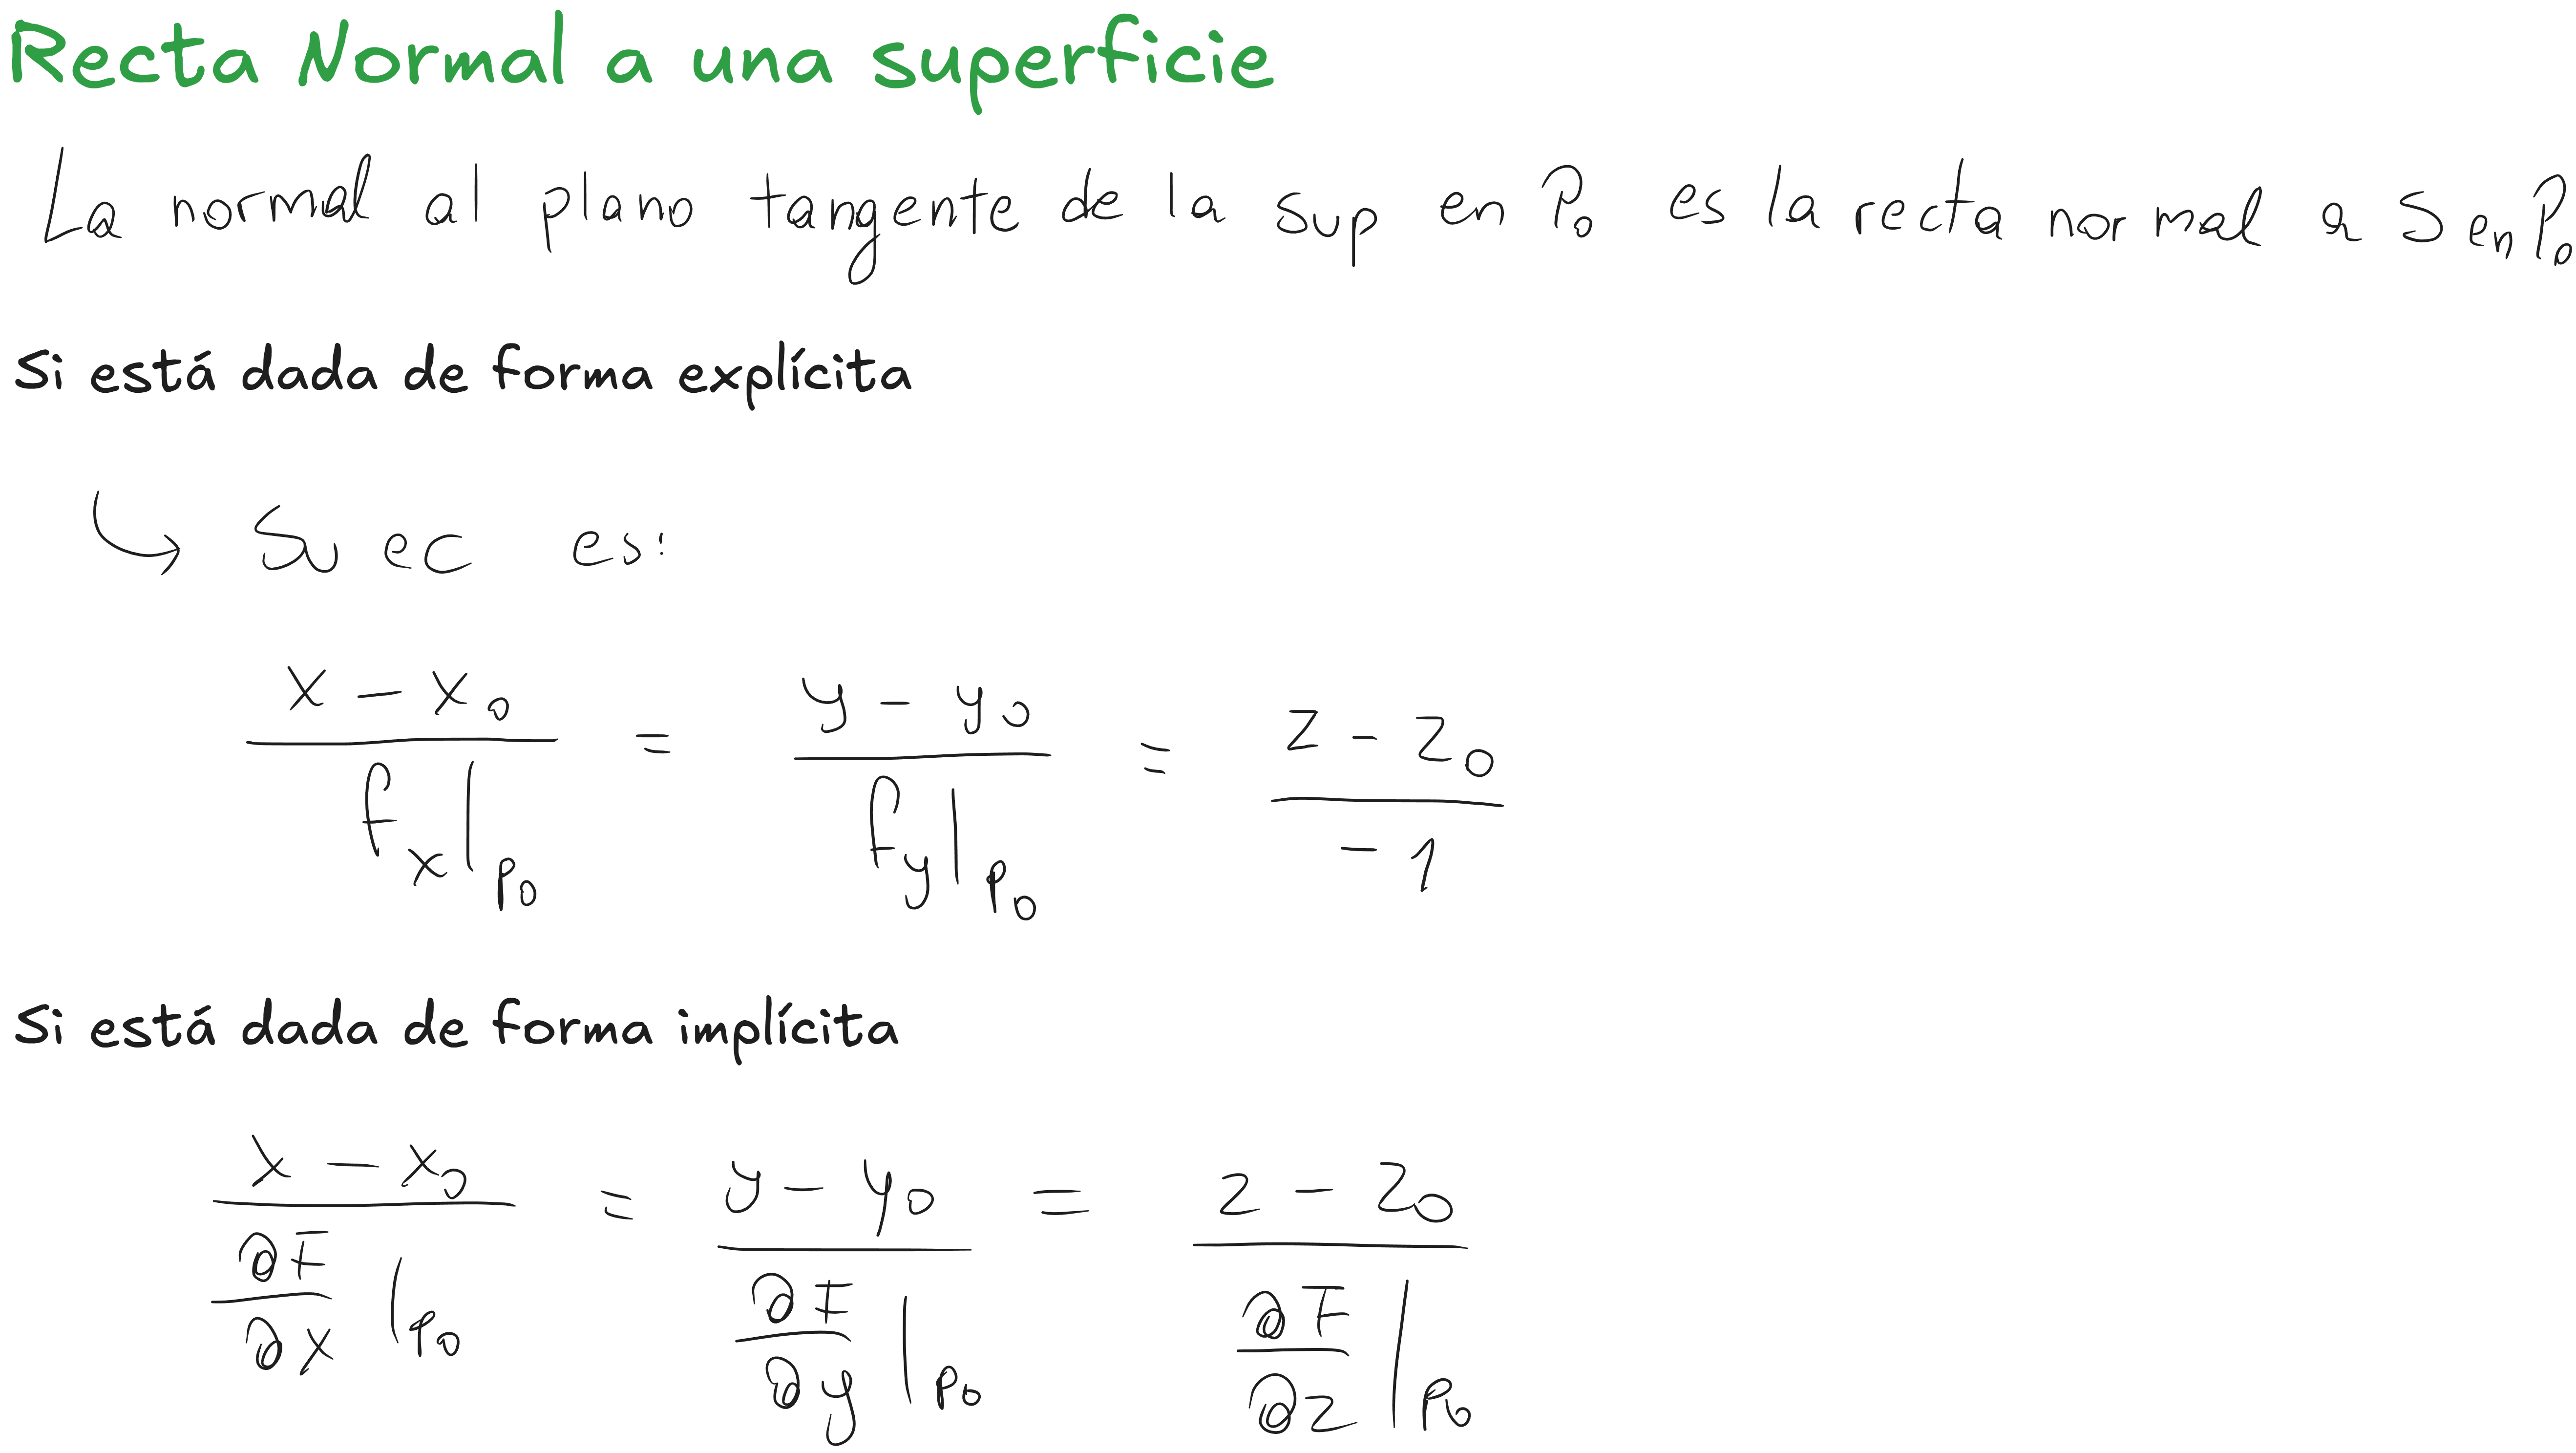 Recta Normal a una superficie
La normal al plano tangente de la sup en P₀ es la recta normal a S en P₀
Si está dada de forma explícita
↳ Su ec es:
\frac{x - x_0}{f_x|_{P_0}} = \frac{y - y_0}{f_y|_{P_0}} = \frac{z - z_0}{-1}
Si está dada de forma implícita
\frac{x - x_0}{\frac{∂F}{∂x}|_{P_0}} = \frac{y - y_0}{\frac{∂F}{∂y}|_{P_0}} = \frac{z - z_0}{\frac{∂F}{∂z}|_{P_0}}